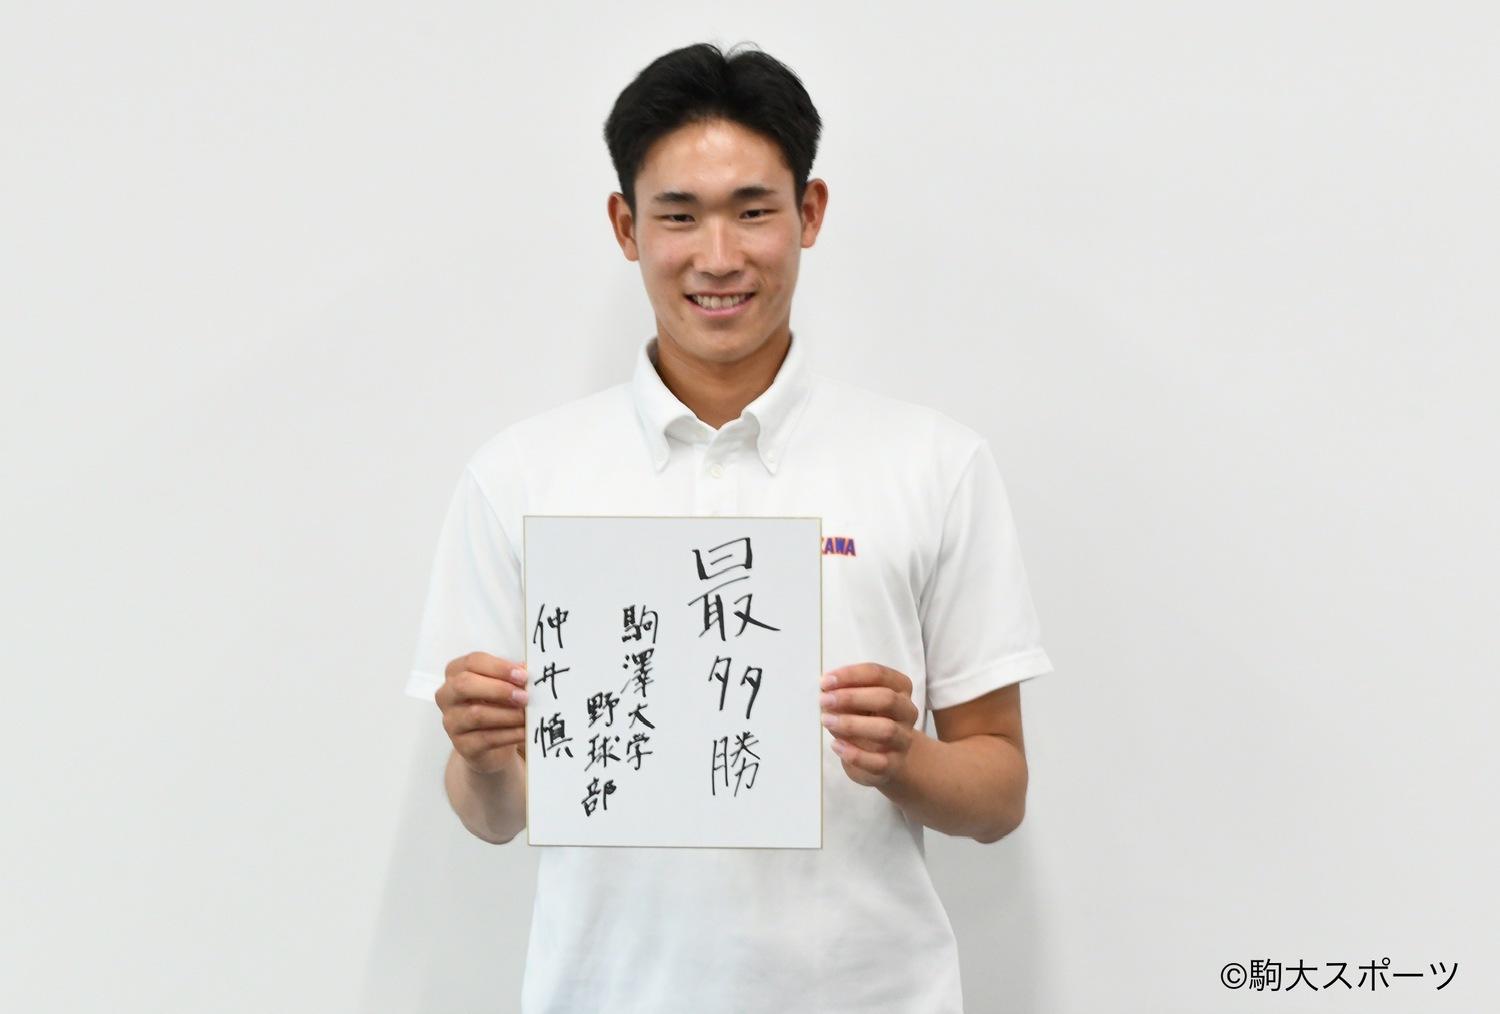 最多勝
駒澤大学
野球部
仲井慎
KAWA
©駒大スポーツ